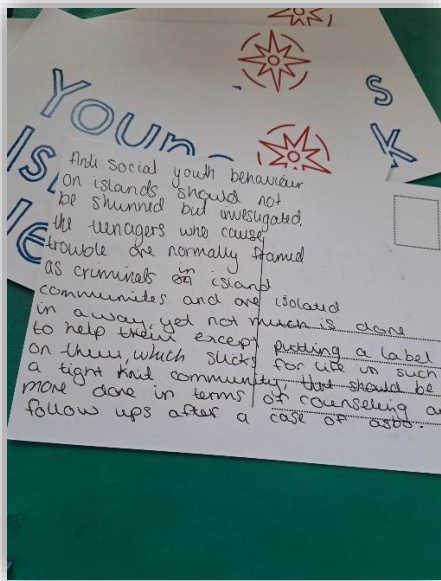 Young
Isl
S
K
Anti social youth behaviour
on islands should not
be shunned but investigated.
the teenagers who cause
trouble are normally framed
as criminals in island
communites and are isolated
in a way, yet not much is done
to help them except putting a label
on them, which sticks for life in such
a tight knit community, that should be
more done in terms of counseling a
follow ups after a case of asbo.